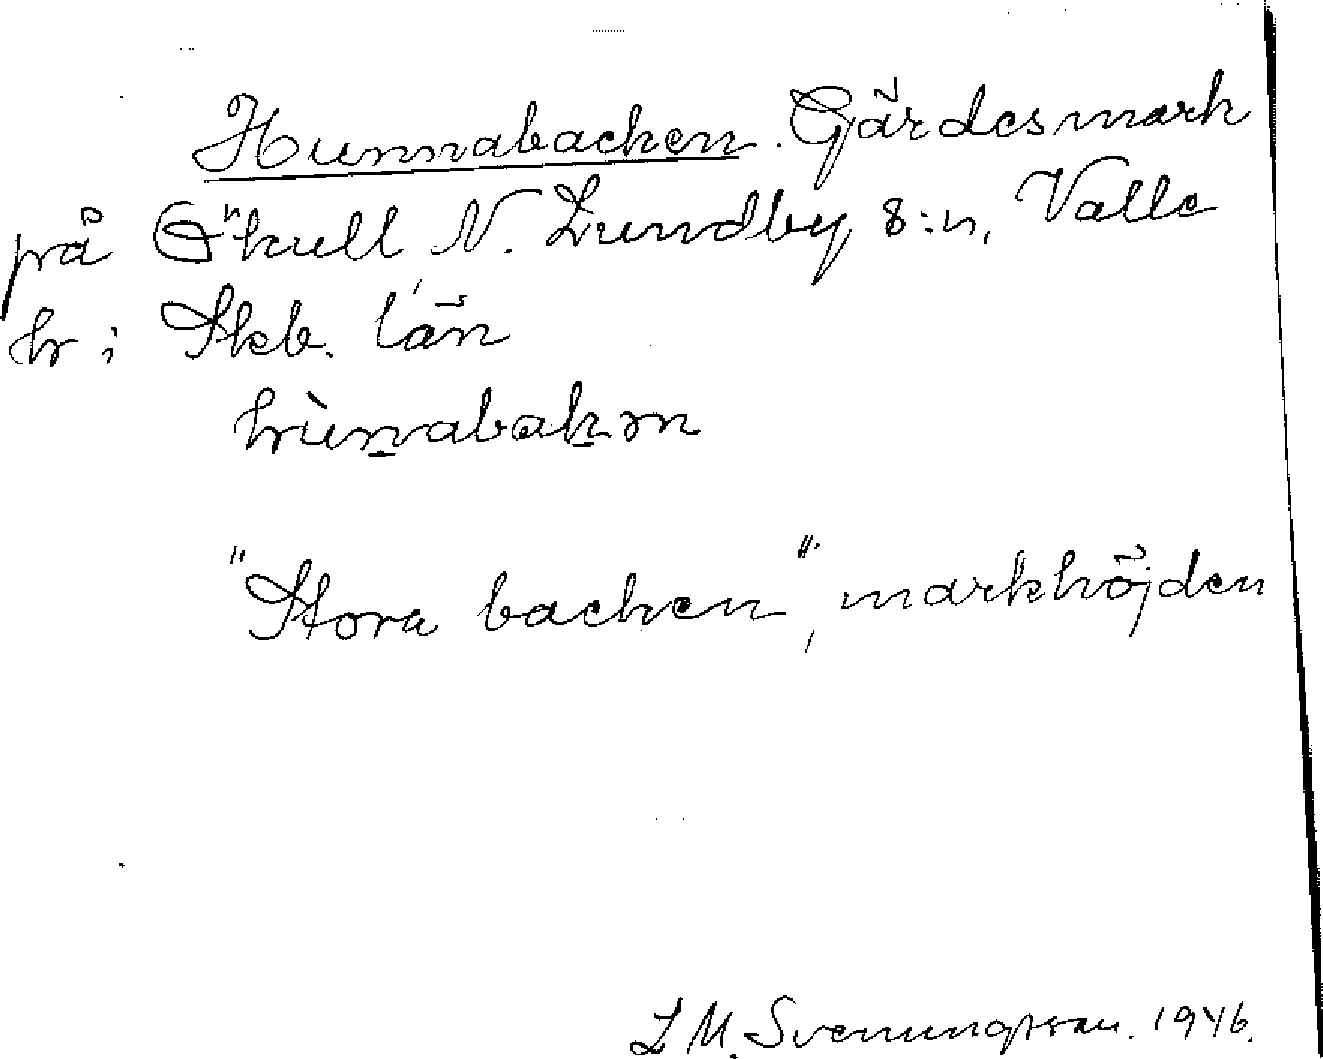 Hunnabacken. Gärdesmark
på Ökull N. Lundby s:n, Valle
hr i Skb. län
hùn̲abak̲ən
"Stora backen", markhöjden
L M. Svenungsson. 1946.